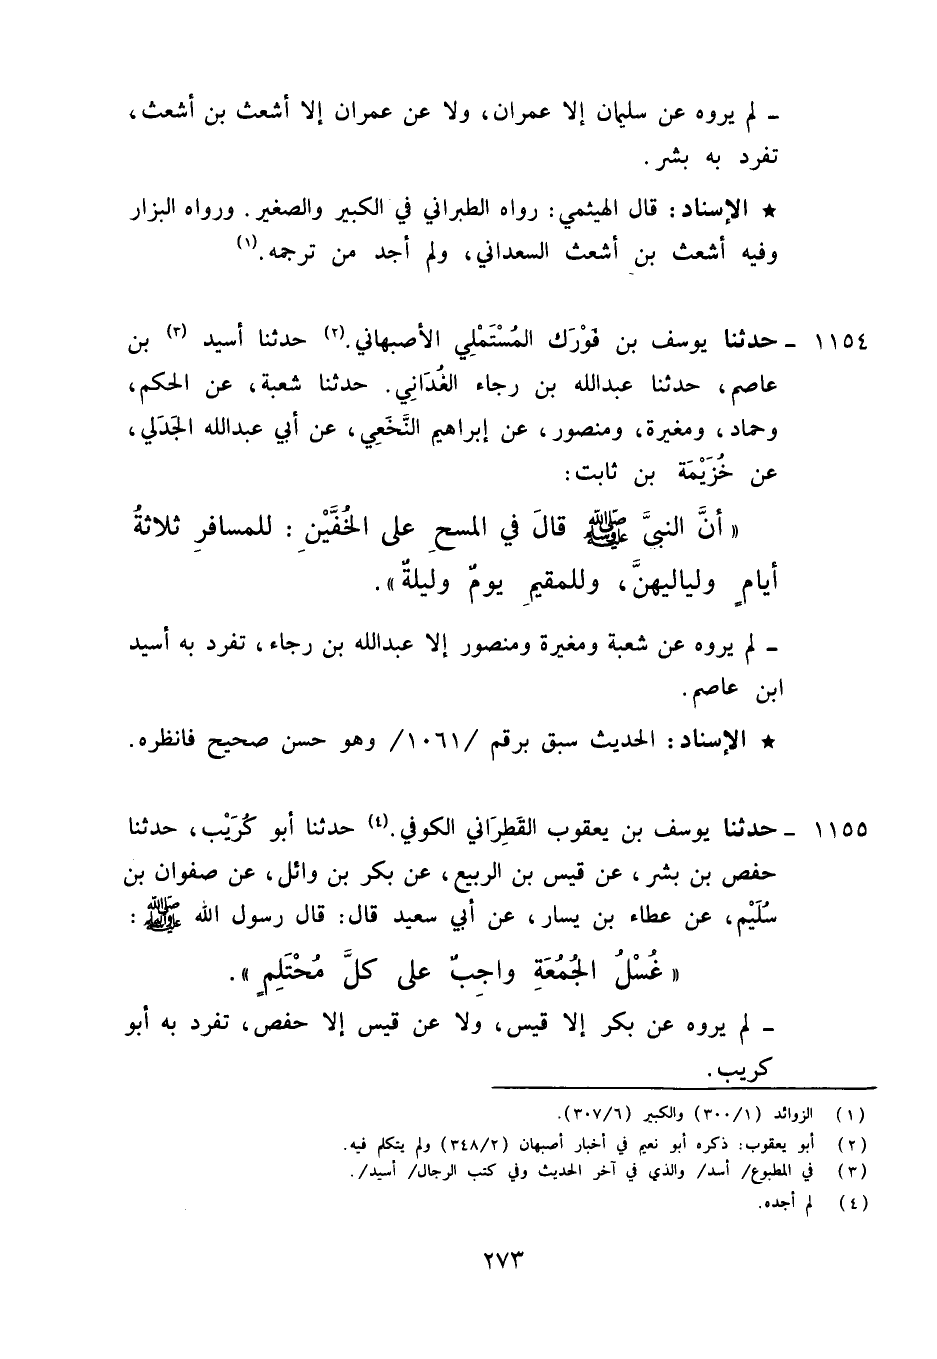 ـ لم يروه عن سليمان إلا عمران، ولا عن عمران إلا أشعث بن أشعث،
تفرد به بشر.
★ الإسناد: قال الهيثمي: رواه الطبراني في الكبير والصغير. ورواه البزار
وفيه أشعث بن أشعث السعداني، ولم أجد من ترجمه.(١)
١١٥٤ ـ حدثنا يوسف بن فَوْرَك المُسْتَمْلِي الأصبهاني.(٢) حدثنا أسيد (٣) بن
عاصم، حدثنا عبدالله بن رجاء الغُدَانِي. حدثنا شعبة، عن الحكم،
وحماد، ومغيرة، ومنصور، عن إبراهيم النَّخَعِي، عن أبي عبدالله الجَدَلي،
عن خُزَيْمَة بن ثابت:
«أنَّ النبيَّ ﷺ قالَ في المسحِ على الخُفَّيْنِ: للمسافرِ ثلاثةُ
أيامٍ ولياليهنَّ، وللمقيمِ يومٌ وليلةٌ».
ـ لم يروه عن شعبة ومغيرة ومنصور إلا عبدالله بن رجاء، تفرد به أسيد
ابن عاصم.
★ الإسناد: الحديث سبق برقم /١٠٦١/ وهو حسن صحيح فانظره.
١١٥٥ ـ حدثنا يوسف بن يعقوب القَطِرَاني الكوفي.(٤) حدثنا أبو كُرَيْب، حدثنا
حفص بن بشر، عن قيس بن الربيع، عن بكر بن وائل، عن صفوان بن
سُلَيْم، عن عطاء بن يسار، عن أبي سعيد قال: قال رسول الله ﷺ:
«غُسْلُ الجُمُعَةِ واجِبٌ على كلَّ مُحْتَلِمٍ».
ـ لم يروه عن بكر إلا قيس، ولا عن قيس إلا حفص، تفرد به أبو
كريب.
(١) الزوائد (٣٠٠/١) والكبير (٣٠٧/٦).
(٢) أبو يعقوب: ذكره أبو نعيم في أخبار أصبهان (٣٤٨/٢) ولم يتكلم فيه.
(٣) في المطبوع/ أسد/ والذي في آخر الحديث وفي كتب الرجال/ أسيد/.
(٤) لم أجده.
٢٧٣